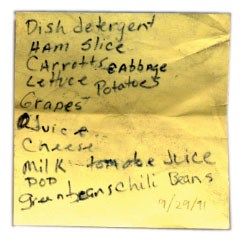 Dish detergent
HAM Slice
CArrotts cabbage
Lettuce Potatoes
Grapes
Juice
Cheese
Milk tomatoe Juice
POP
green beans Chili Beans
9/29/91